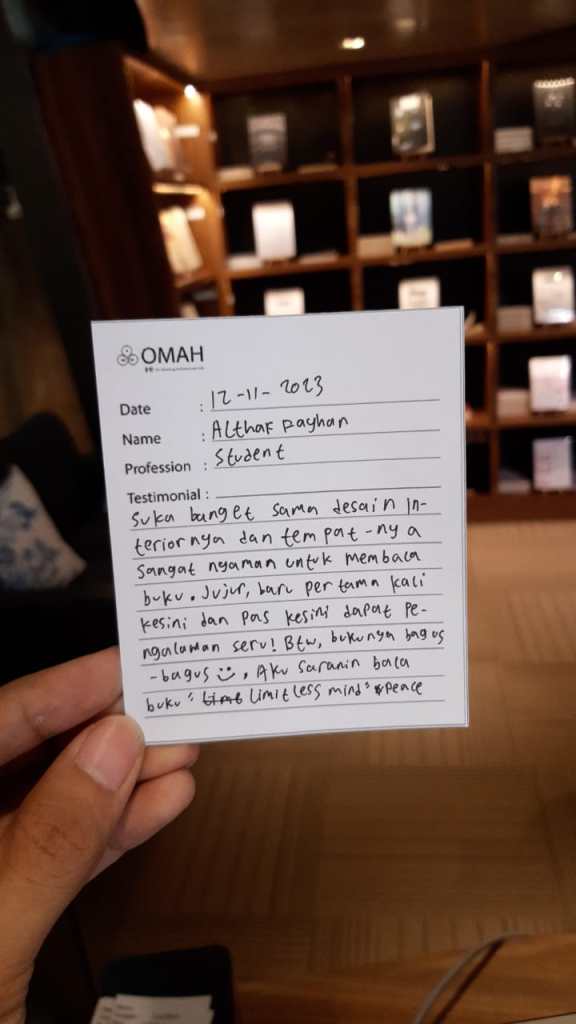 OMAH
Date : 12-11-2023
Name : Althaf Rayhan
Profession : Student
Testimonial :
Suka banget sama desain In-
teriornya dan tempat-nya
sangat nyaman untuk membaca
buku. Jujur, baru pertama kali
kesini dan pas kesini dapat pe-
ngalaman seru! Btw, bukunya bagus
-bagus ☺, Aku saranin baca
buku " Limitless mind" peace